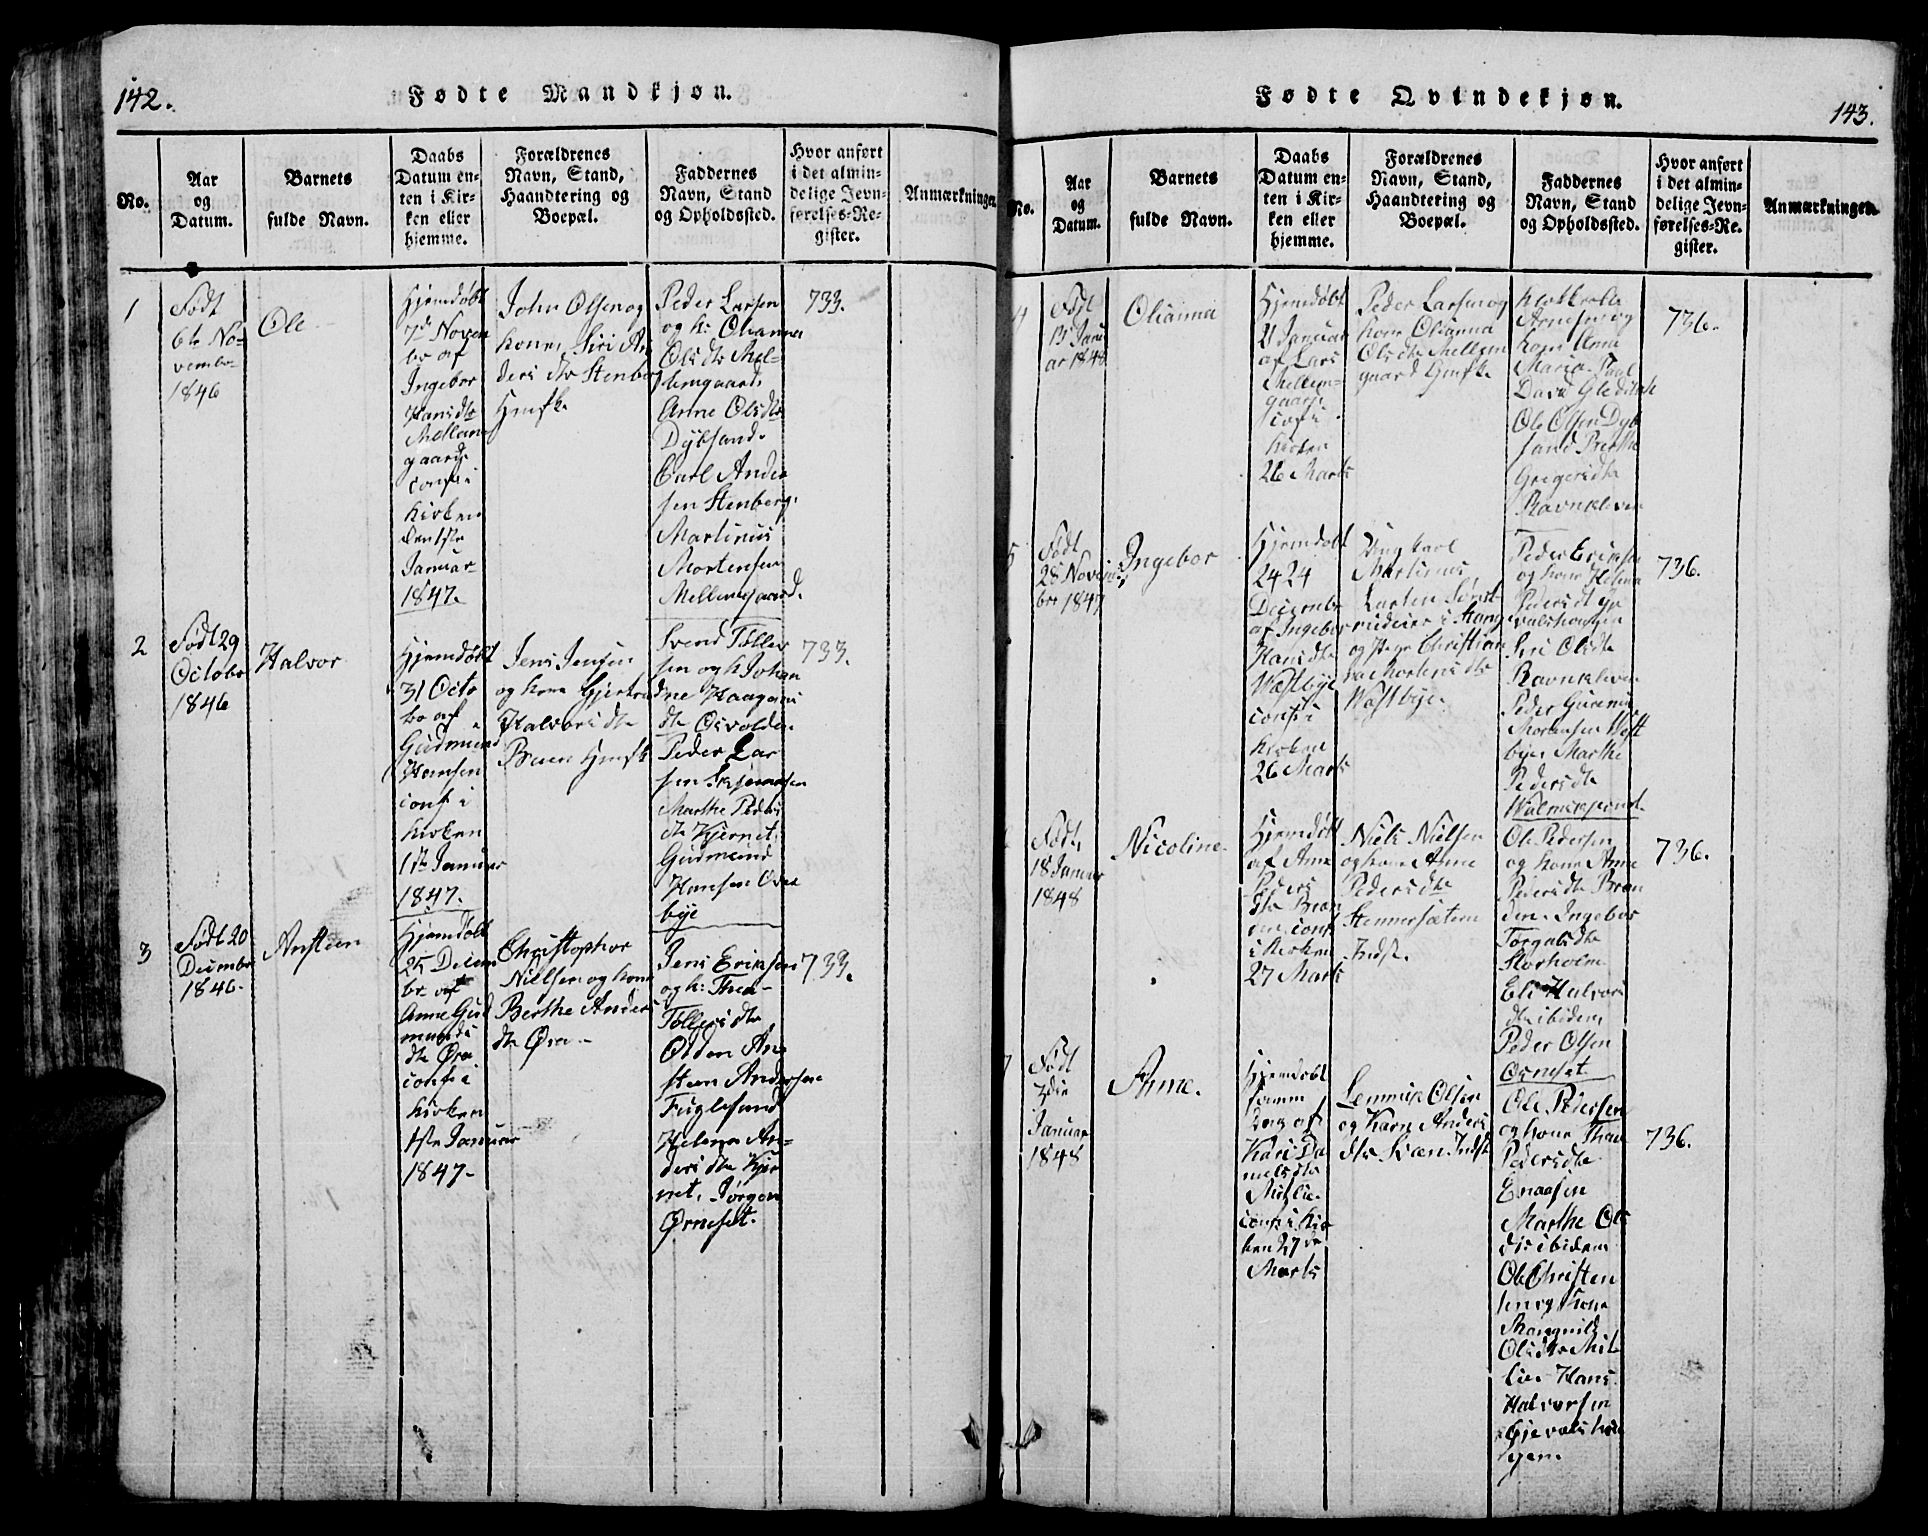 142.
Fødte Mandkjøn.
No.
Aar
og
Datum.
Barnets
fulde Navn.
Daabs
Datum en-
ten i Kir-
ken eller
hjemme.
Forældrenes
Navn, Stand,
Haandtering og
Boepæl.
Faddernes
Navn, Stand
og Opholdssted.
Hvor anført
i det almin-
delige Jevn-
førelses-Re-
gister.
Anmærkninger.
1
Født
6te No-
vembr
1846
Ole
Hjemdøbt
7de Novem
br af
Ingebor
Hansdtr
Mellem
gaard
conf i
Kirken
den 1ste
Januar
1847.
John Olsen og
kone Siri An
dersdtr Stenberg
Husfk.
Peder Larsen
og k: Olianna
Olsdtr Mel-
lemgaard,
Anne Olsdtr
Dybsand.
Carl Ander
sen Stenberg.
Martinus
Mortensen
Mellemgaard.
733.
2
Født 29
October
1846
Halvor
Hjemdøbt
31 Octo
br af
Gudmund
Hansen
conf i
Kirken
1ste Januar
1847.
Jens Jensen
og kone Gjertru
Halvorsdtr
Braen Husfk
Svend Toller
sen og k Johan
dine Haagens
dtr Osvolden
Peder Lar
sen Skjeraasen
Marthe Peders
dtr Kjernet.
Gudmund
Hansen Over
bye
733.
3
Født 20
Decembr
1846.
Ansteen
Hjemdøbt
25 Decem
br af
Anne Gud
munds
dtr Øra
conf i
Kirken
1ste Januar
1847.
Christopher
Nielsen og kone
Berthe Anders
dtr Øra.
Jens Eriksen
og k: Thea
Tollersdtr
Odden An-
steen Andersen
Fuglesand
Helena An-
dersdtr Kjer
net, Jørgen
Ørneset.
733.
Fødte Qvindekjøn.
143.
No.
Aar
og
Datum.
Barnets
fulde Navn.
Daabs
Datum en-
ten i Kir-
ken eller
hjemme.
Forældrenes
Navn, Stand,
Haandtering og
Boepæl.
Faddernes
Navn, Stand
og Opholdssted.
Hvor anført
i det almin-
delige Jevn-
førelses-Re-
gister.
Anmærkninger.
4
Født
13 Janu
ar 1848
Olianna
Hjemdøbt
21 Januar
af Lars
Mellem-
gaard
conf i
Kirken
26 Marts
Peder Larsen og
kone Olianna
Olsdtr Mellem
gaard Husfk
Arnesen og
kone Anne
Maria. Paul
Ole Olsen Dyb
sand Berthe
Gregersdtr
Ravnkleven
736.
5
Født
28 Novem
br 1847
Ingebor
Hjemdøbt
24 24
Decembr
af Ingebor
Hansdtr
Wæstbye
conf i
Kirken
26 Marts
Ungkarl
Martinus
Larsen
og Pige Christian
ne Mortensdtr
Wæstbye.
Peder Eriksen
og kone Helena
Pedersdt Gje
valshougen
Siri Olsdtr
Ravnkleven
Peder Gurinius
Mortensen West
bye, Marthe
Pedersdtr
736.
Født,
18 Januar
1848
Nicoline
Hjemdøbt
af Anne
Peders
dtr Bran
den. conf
i Kirken
27 Marts
Niels Nielsen
og kone Anne
Pedersdtr
Stennersæteren
Indst.
Ole Pedersen
og kone Anne
Pedersdtr Bran
den. Ingebor
Torgalsdtr
Storholm
Eli Halvors
dtr ibidem,
Peder Olsen
Ørneset
736.
7
Født
7die
Januar
1848
Anne.
Hjemdøbt
samme
Dag af
Kari Da
nielsdtr
Mislie.
conf i Kir
ken 27de
Marts
Lemmik Olsen
og Karn Anders
dtr Svæen Indst
Ole Pedersen
og kone Thea
Pedersdtr
Enaasen
Marthe Ols
dtr ibidem
Ole Christen
sen og kone
Olsdtr Mis
lie. Hans
Halvorsen
Gjevalshou
gen.
736.